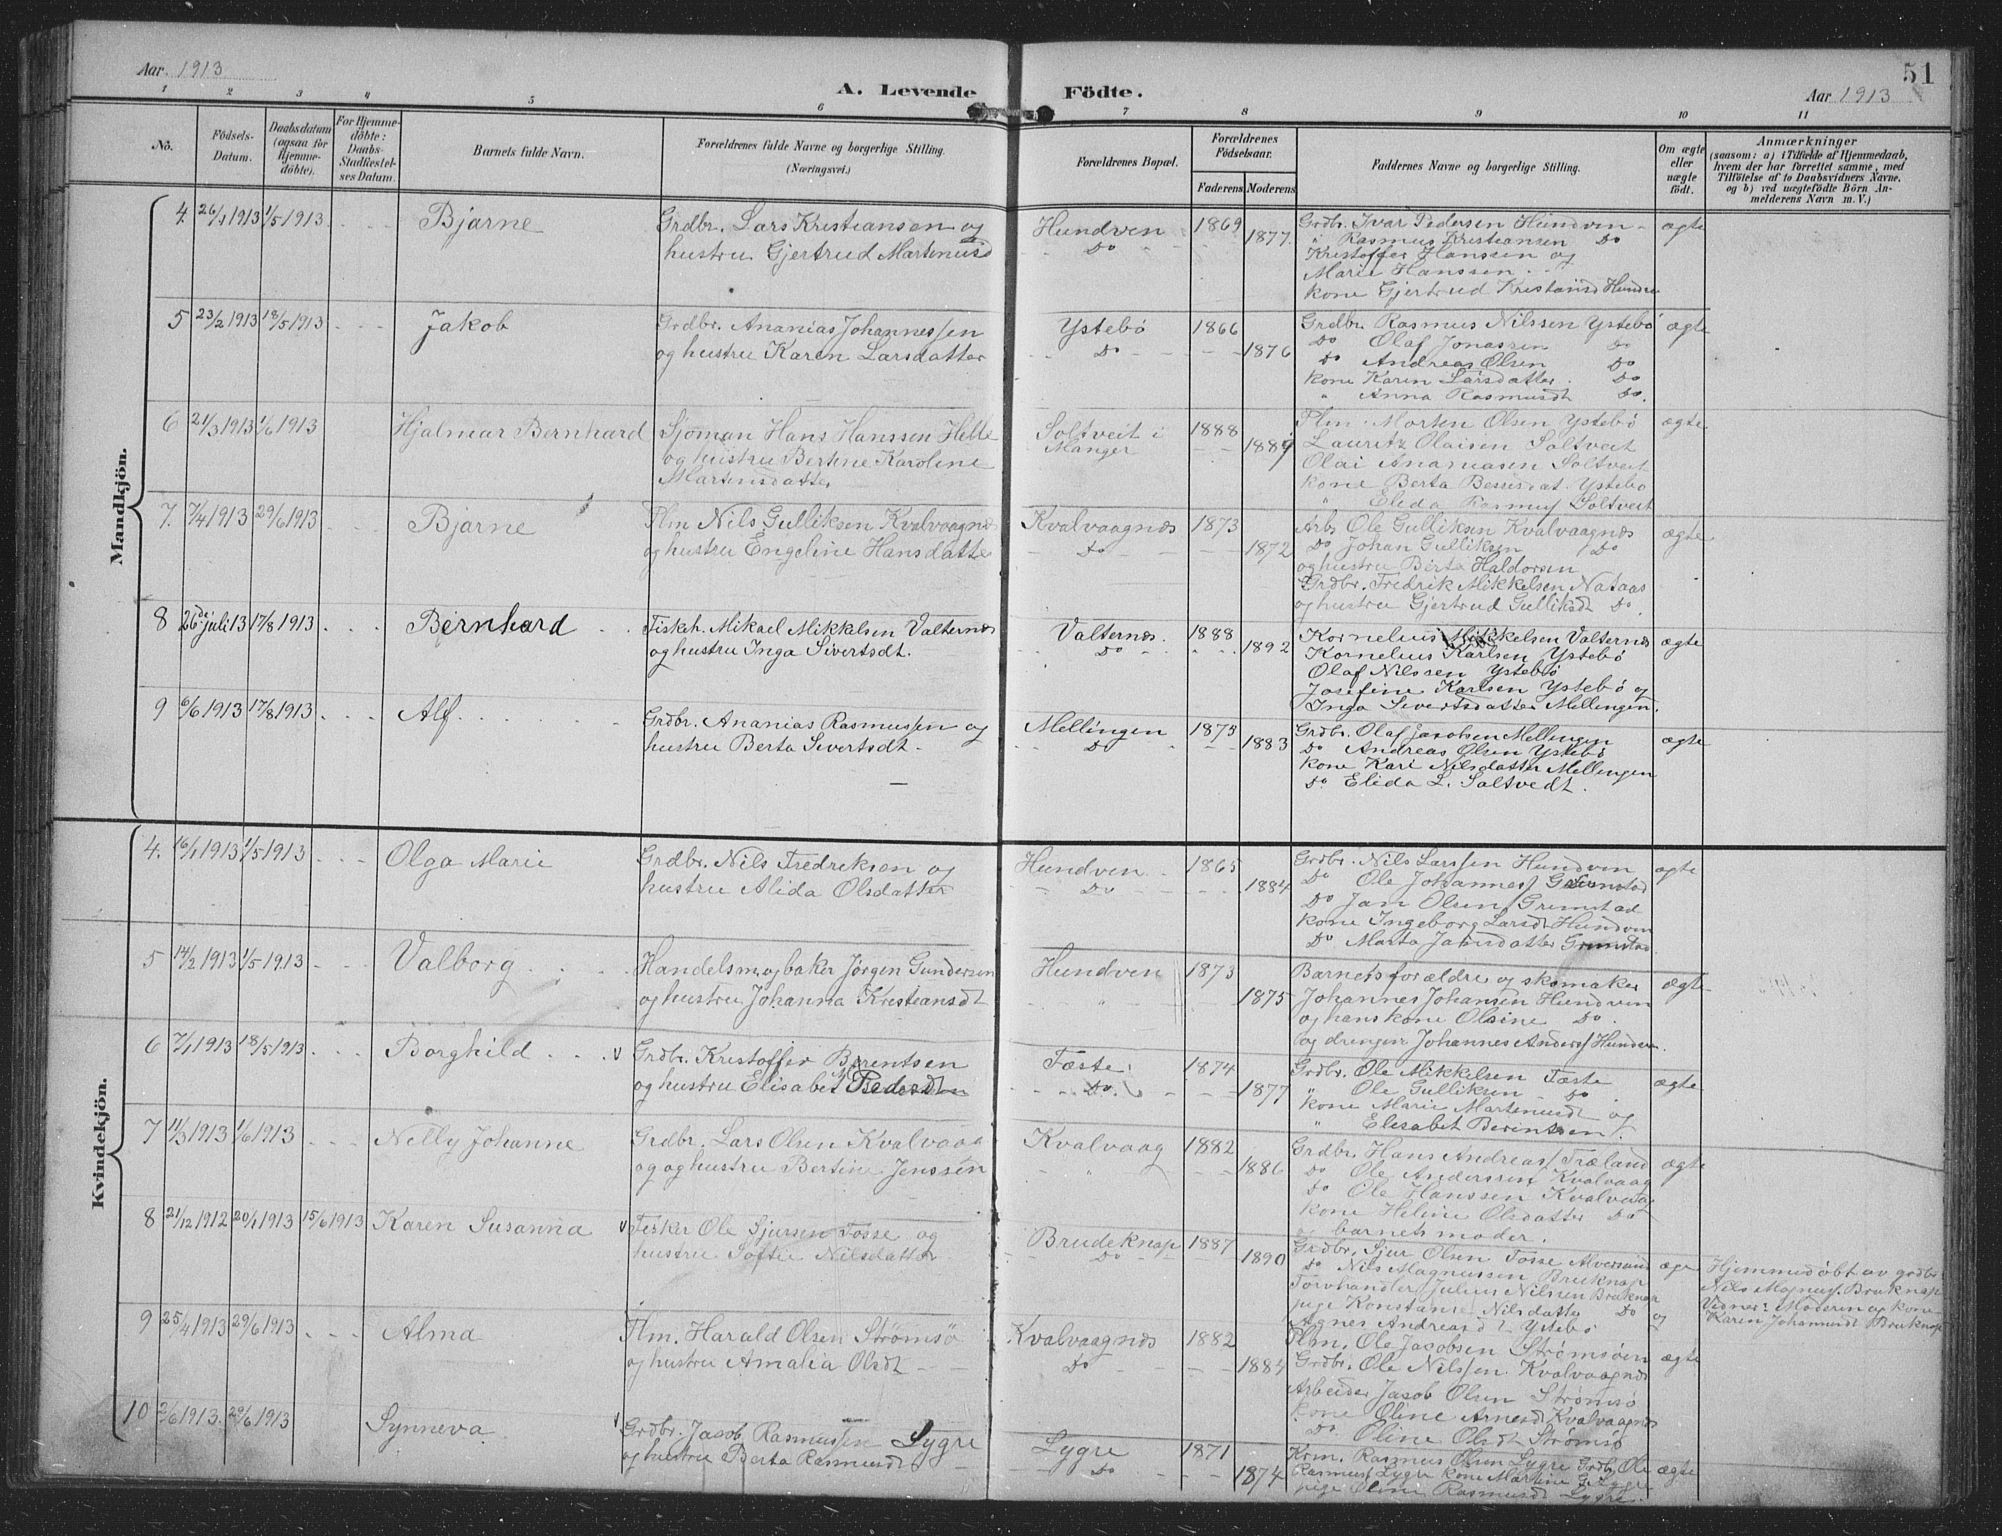 51
Aar. 1913
A. Levende Födte.
Aar 1913
1 2 3 4 5 6 7 8 9 10 11
No.
Födsels-Datum.
Daabsdatum (ogsaa for Hjemme-döbte).
For Hjemme-döbte: Daabs-Stadfæstel-ses Datum.
Barnets fulde Navn.
Forældrenes fulde Navne og borgerlige Stilling. (Næringsvei.)
Forældrenes Bopæl.
Forældrenes Födselsaar.
Faderens Moderens
Faddernes Navne og borgerlige Stilling.
Om ægte eller uægte födt.
Anmærkninger
(saasom: a) i Tilfælde af Hjemmedaab, hvem der har forrettet samme, med Tilföielse af to Daabsvidners Navne, og b) ved uægtefödte Börn An-melderens Navn m. V.)
Mandkjön.
4. 26/4 1913 1/5 1913 Bjarne
Grdbr. Lars Kristiansen og
hustru Gjertrud Martinusd
Hundven 1869
Do 1877.
Grdbr. Ivar Pedersen Hundven
" Rasmus Kristiansen Do
Kristoffer Hanssen og
Marie Hanssen
kone Gjertrud
ægte
5 23/2 1913 18/5 1913 Jakob
Grdbr. Ananias Johannessen
og hustru Karen Larsdatter
Ystebö 1866
Do 1876
Grdbr. Rasmus Nilssen Ystebö
Do Olaf Jonassen Do
Do Andreas Olsen Do
kone Karen Larsdatter Do
" Anna Rasmusdt Do.
ægte
6 21/3 1913 1/6 1913 Hjalmar Bernhard
Sjöman Hans Hanssen Helle
og hustru Bertine Karoline
Martinsdatter
Soltveit i 1888
Manger 1889
Plm. Morten Olsen Ystebö
Lauritz Olaisen Soltveit
Olai Ananiasen Soltveit
kone Berta Ystebö
" Elida Soltveit
ægte
7. 7/4 1913 29/6 1913 Bjarne
Plm Nils Gulliksen Kvalvaagnæs
og hustru Engeline Hansdatter
Kvalvaagnæs 1873
Do 1872
Arb. Ole Gulliksen Kvalvaagnæs
Do Johan Gulliksen Do
og hustru Berta Haldorsen
Grdbr. Fredrik Mikkelsen Nataas
og hustru Gjertrud Gulliksdt Do.
ægte
8 26de juli 13 17/8 1913 Bernhard
Fiskh. Mikael Mikkelsen Valternæs
og hustru Inga Sivertsdt.
Valternæs. 1888
Do 1892
Kornelius Mikkelsen Valternæs
Kornelius Karlsen Ystebö
Olaf Nilssen Ystebö
Josefine Karlsen Ystebö og
Inga Sivertsdatter Mellingen.
ægte
9 6/6 1913 17/8 1913 Alf
Grdbr. Ananias Rasmussen og
hustru Berta Sivertsdt.
Mellingen 1873
Do 1883
Grdbr. Olaf Jacobsen Mellingen
Do Andreas Olsen Ystebö
kone Kari Nilsdatter Mellingen
Do Elida L. Soltvedt.
ægte
Kvindekjön.
4. 16/1 1913 1/5 1913 Olga Marie
Grdbr. Nils Fredriksen og
hustru Alida Olsdatter
Hundven 1865
Do 1884
Grdbr. Nils Larssen Hundven
Do Ole Johannes
Do Jan Olsen Grimstad
kone Ingeborg Larsdt Hundven
Do Marta Grimstad
ægte
5 14/2 1913 1/5 1913 Valborg
Handelsm. og baker Jörgen Gundersen
og hustru Johanna Kristiansdt
Hundven 1873
" 1875
Barnets forældre og skomaker
Johannes Johansen Hundven
og hans kone Olsine Do.
og drengen Johannes Anders Hundven.
ægte
6 7/1 1913 18/5 1913 Borghild
v Grdbr. Kristoffer Berentsen
og hustru Elisabet Pedersdtr
Fæste 1874
Do 1877
Grdbr. Ole Mikkelsen Fæste
" Ole Gulliksen Do.
kone Marie Martinusdt og
" Elisabet Berintsen.
ægte
7 11/3 1913 1/6 1913 Nelly Johanne
Grdbr. Lars Olsen Kvalvaag
og og hustru Bertine Jenssen
Kvalvaag 1882
" 1886
Grdbr. Hans Andreas Træland
Do Ole Anderssen Kvalvaag
Do Ole Hanssen Kvalvaag
kone Heline Olsdatter Do
o barnets moder.
ægte
8 21/12 1912 20/1 1913 15/6 1913 Karen Susanna
v Fisker Ole Sjursen Fosse og
hustru Sofie Nilsdatter
Brudeknap 1887
Do 1890
Grdbr. Sjur Olsen Fosse Alversund
Do Nils Magnussen Bruknap
Torvhandler Julius Nilsen Bruknap
pige Konstanse Nilsdatter Do og
Agnes Andreasdt Ystebö
Hjemmedöbt av grdbr
Nils Magnus. Bruknap
Vidner: Moderen og kone
Karen Johannesdt Bruknap
9 25/4 1913 29/6 1913 Alma
Plm. Harald Olsen Strömsö
og hustru Amalia Olsdt
Kvalvaagnæs 1882
Do 1884
Plm. Ole Jacobsen Strömsöen
Grdbr. Ole Nilssen Kvalvaagnæs
Arbeider Jacob Olsen Strömsö
kone Oline Arnesdt Kvalvaagnæs
Do. Oline Olsdt Strömsö
ægte
10 2/6 1913. 29/6 1913 Synneva
v Grdbr. Jacob Rasmussen Lygre
og hustru Berta Rasmusdt
Lygre 1871
Do 1874
Krm. Rasmus Olsen Lygre Grdbr. Ole
Rasmus Lygre kone Martine
pige Oline Rasmusdt Lygre.
ægte